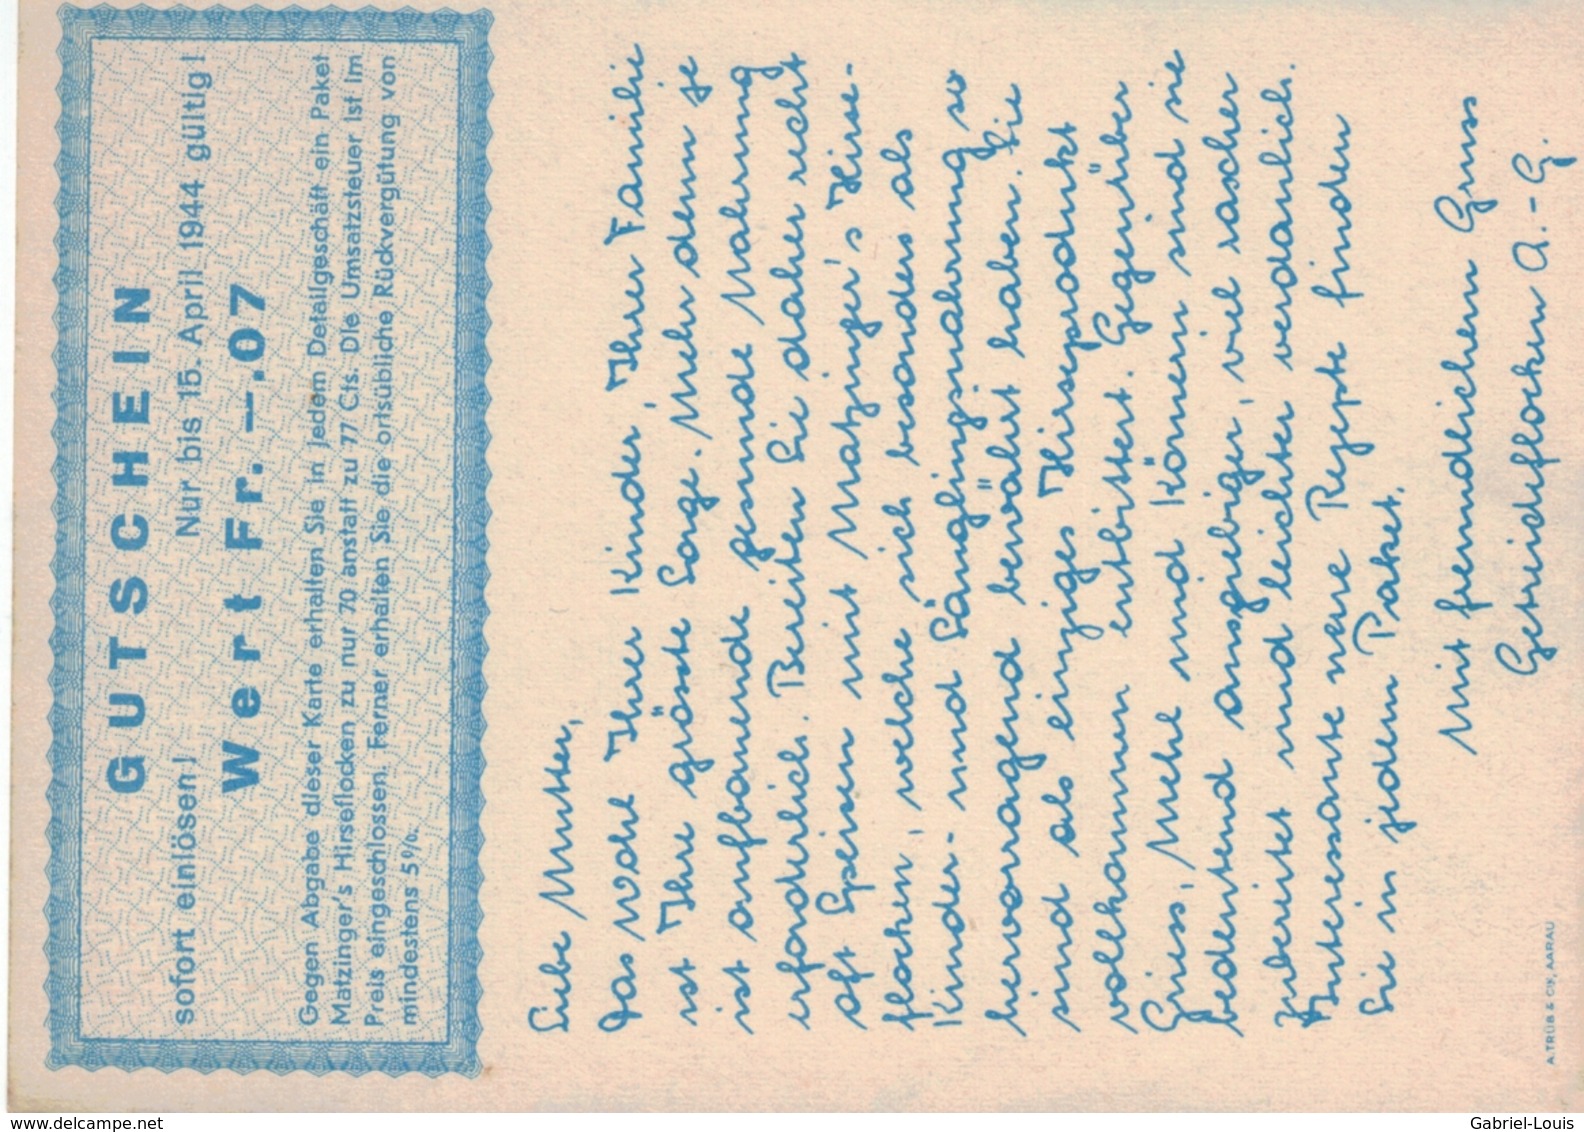 GUTSCHEIN
sofort einlösen! Nur bis 15. April 1944 gültig!
Wert Fr. —.07
Gegen Abgabe dieser Karte erhalten Sie in jedem Detailgeschäft ein Paket
Matzinger's Hirseflocken zu nur 70 anstatt zu 77 Cts. Die Umsatzsteuer ist im
Preis eingeschlossen. Ferner erhalten Sie die ortsübliche Rückvergütung von
mindestens 5%.
Liebe Mutter,
Das Wohl Ihrer Kinder, Ihrer Familie
ist Ihre grösste Sorge. Mehr denn je
ist aufbauende gesunde Nahrung
erforderlich. Bereiten Sie daher recht
oft Speisen mit Matzinger's Hirse-
flocken, welche sich besonders als
Kinder- und Säuglingsnahrung so
hervorragend bewährt haben. Sie
sind als einziges Hirseprodukt
vollkommen entbittert. Gegenüber
Griess, Mehl und Körnern sind sie
bedeutend ausgiebiger, viel rascher
zubereitet und leichter verdaulich.
Interessante neue Rezepte finden
Sie in jedem Paket.
Mit freundlichem Gruss
Getreideflocken A.-G.
A. TRÜB & CIE, AARAU
www.delcampe.net
Gabriel-Louis